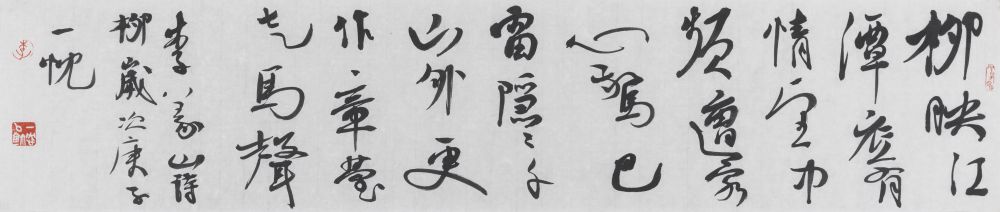 柳映江
潭底有
情望中
頻遣客
心驚巴
雷隱〻千
山外更
作章臺
走馬聲
李義山詩
柳歲次庚子
一忱
李